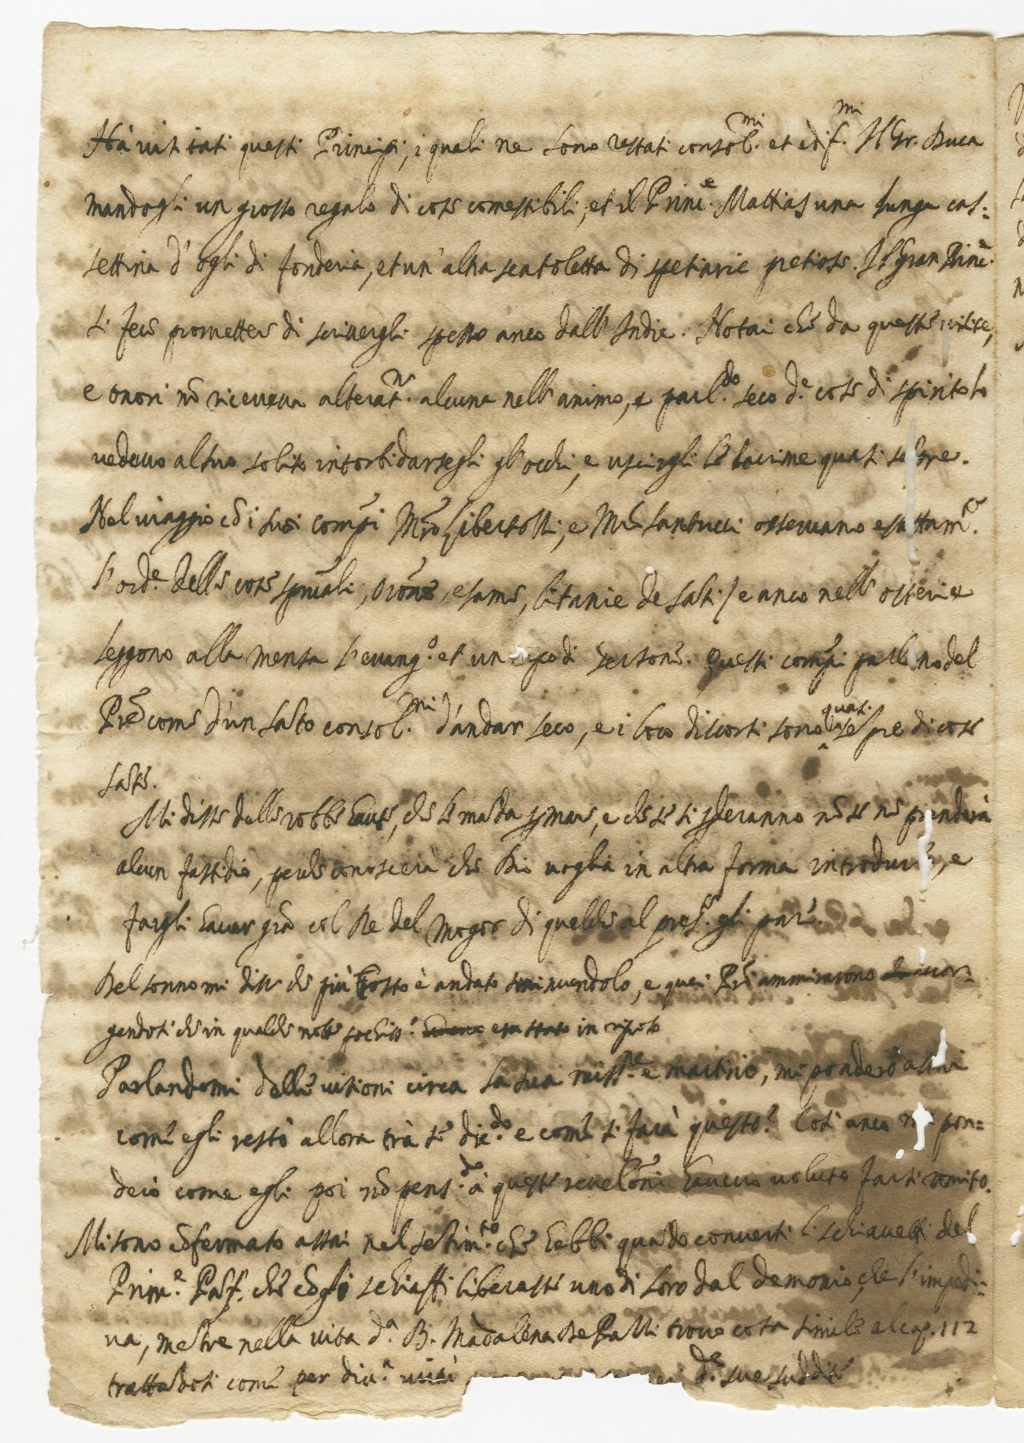 Hà visitati questi Principi, i quali ne sono restati consol.mi et edif.mi Il Gr. Duca
mandogli un grosso regalo di cose comestibili, et il Princ.e Mattias una lunga cas=
settina d'ogli di fonderia, et un'altra scatoletta di spetiarie pretiose. Il Gran Princ.e
si fece promettere di scrivergli spesso anco dall'Indie. Notai che da queste visite,
e onori nō riceveva alterat.ne alcuna nell'animo, e parl.do seco d.e cose di spirito lo
vedevo al suo solito intorbidarsegli gl'occhi, e uscirgli le lacrime quasi sēpre.
Nel viaggio cō i suoi comp.i Mro Gibertolli, e Mro Santucci osservano esattam.te
l'ord.e delle cose spūali, orōne, esame, litanie de Sati / e anco nelle osterie
leggono alla mensa l'evang.o et un capo di Gersone. Questi comp.i parlano del
Pre come d'un Sāto consol.mi d'andar seco, e i loro discorsi sono quasi sēpre di cose
sāte.
Mi disse delle robbe haute, che le māda p mare, e che se si pderanno nō se ne prenderà
alcun fastidio, perche conoscerà che Dio voglia in altra forma introdurlo, e
fargli haver grā col Re del Mogor di quello che al pres.te gli pare.
Del sonno mi disse che più tosto è andato sminuendolo, e quei Pri ammiravono accor=
gendosi che in qualche notte pochiss.o era stato in riposo
Parlandomi delle visioni circa la sua miss.ne e martirio, mi ponderò assai
come egli restò allora trà se dic.do e come si farà questo? Così anco mi pon=
derò come egli poi nō pens.do à queste revelōni haveva voluto farsi romito.
Mi sono cōfermato assai nel sētim.to che hebbi quādo convertì li schiavetti del
Prin.e Pāf. che cō gli schiaffi liberasse uno di loro dal demonio, che l'impedi=
va, mētre nella vita d.a B. Madalena De Pazzi trovo cosa simile al cap. 112
trattādosi come per div.a d.e sue suddite